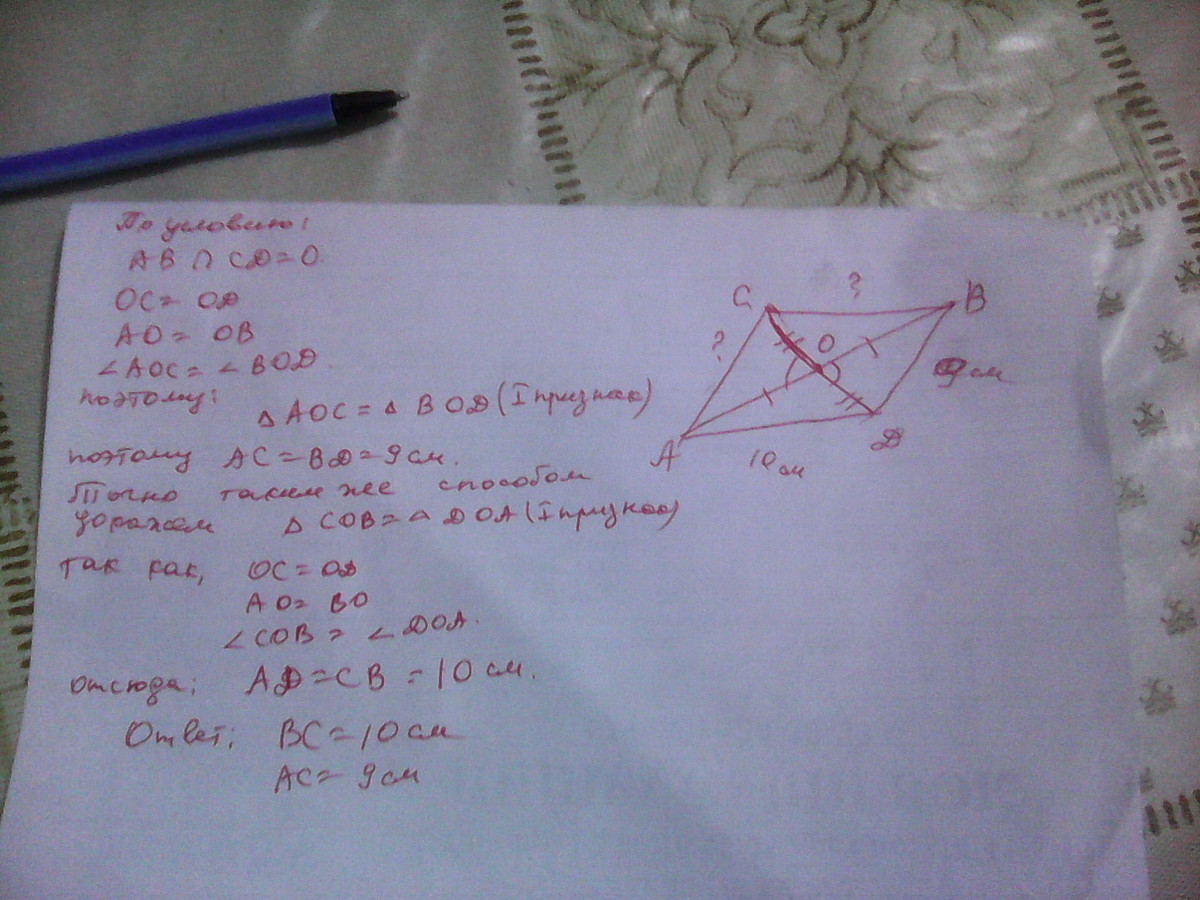 По условию:
AB ∩ CD = O.
OC = OD
AO = OB
∠AOC = ∠BOD.
поэтому:
△ AOC = △ BOD (I признак)
поэтому AC = BD = 9 см.
Точно таким же способом
△ COB = △ DOA (I признак)
так как, OC = OD
AO = BO
∠COB = ∠DOA.
отсюда; AD = CB = 10 см.
Ответ; BC = 10 см
AC = 9 см
C ? B
? O
9 см
A D
10 см